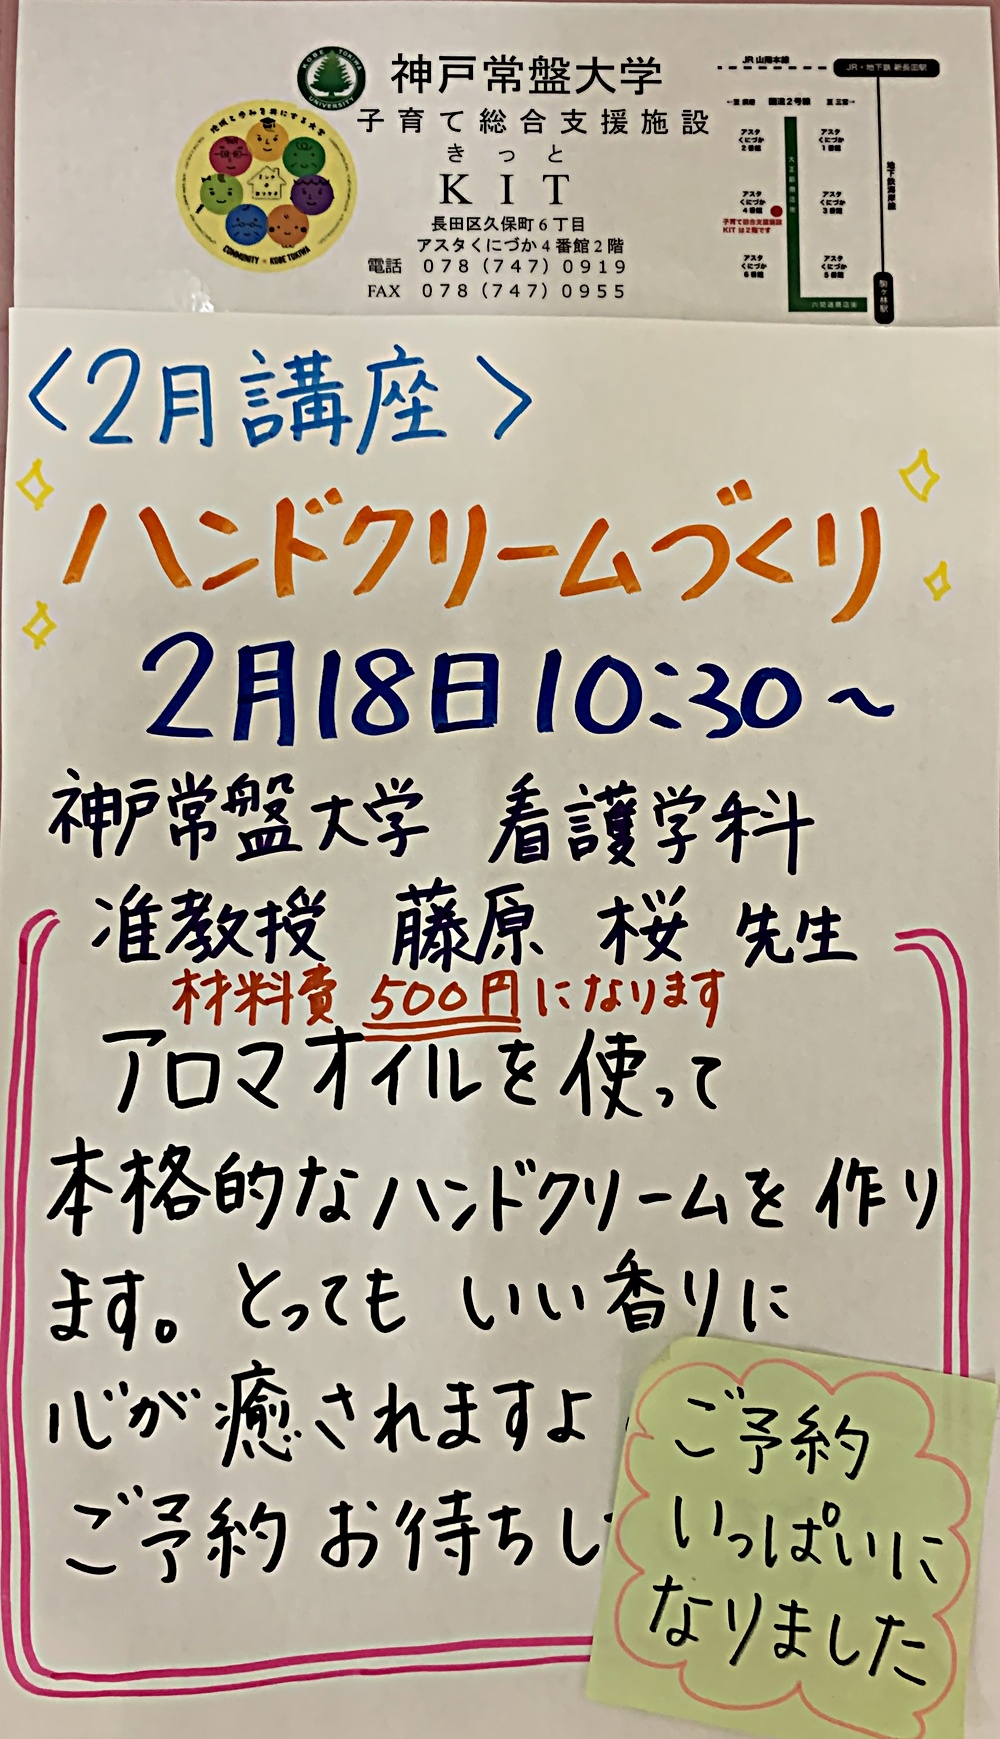 KOBE TOKIWA
UNIVERSITY
神戸常盤大学
子育て総合支援施設
きっと
KIT
長田区久保町6丁目
アスタくにづか4番館2階
電話 078(747)0919
FAX 078(747)0955
地域と歩みを共にする大学
COMMUNITY × KOBE TOKIWA
JR山陽本線
JR・地下鉄 新長田駅
国道2号線
至 三宮→
アスタ
くにづか
2番館
アスタ
くにづか
1番館
アスタ
くにづか
4番館
アスタ
くにづか
3番館
子育て総合支援施設
KITは2階です
アスタ
くにづか
6番館
アスタ
くにづか
5番館
大正筋商店街
地下鉄海岸線
六間道商店街
駒ヶ林駅
〈2月講座〉
ハンドクリームづくり
2月18日10:30～
神戸常盤大学 看護学科
准教授 藤原 桜 先生
材料費 500円になります
アロマオイルを使って
本格的なハンドクリームを作り
ます。とっても いい香りに
心が癒されますよ
ご予約 お待ちし
ご予約
いっぱいに
なりました